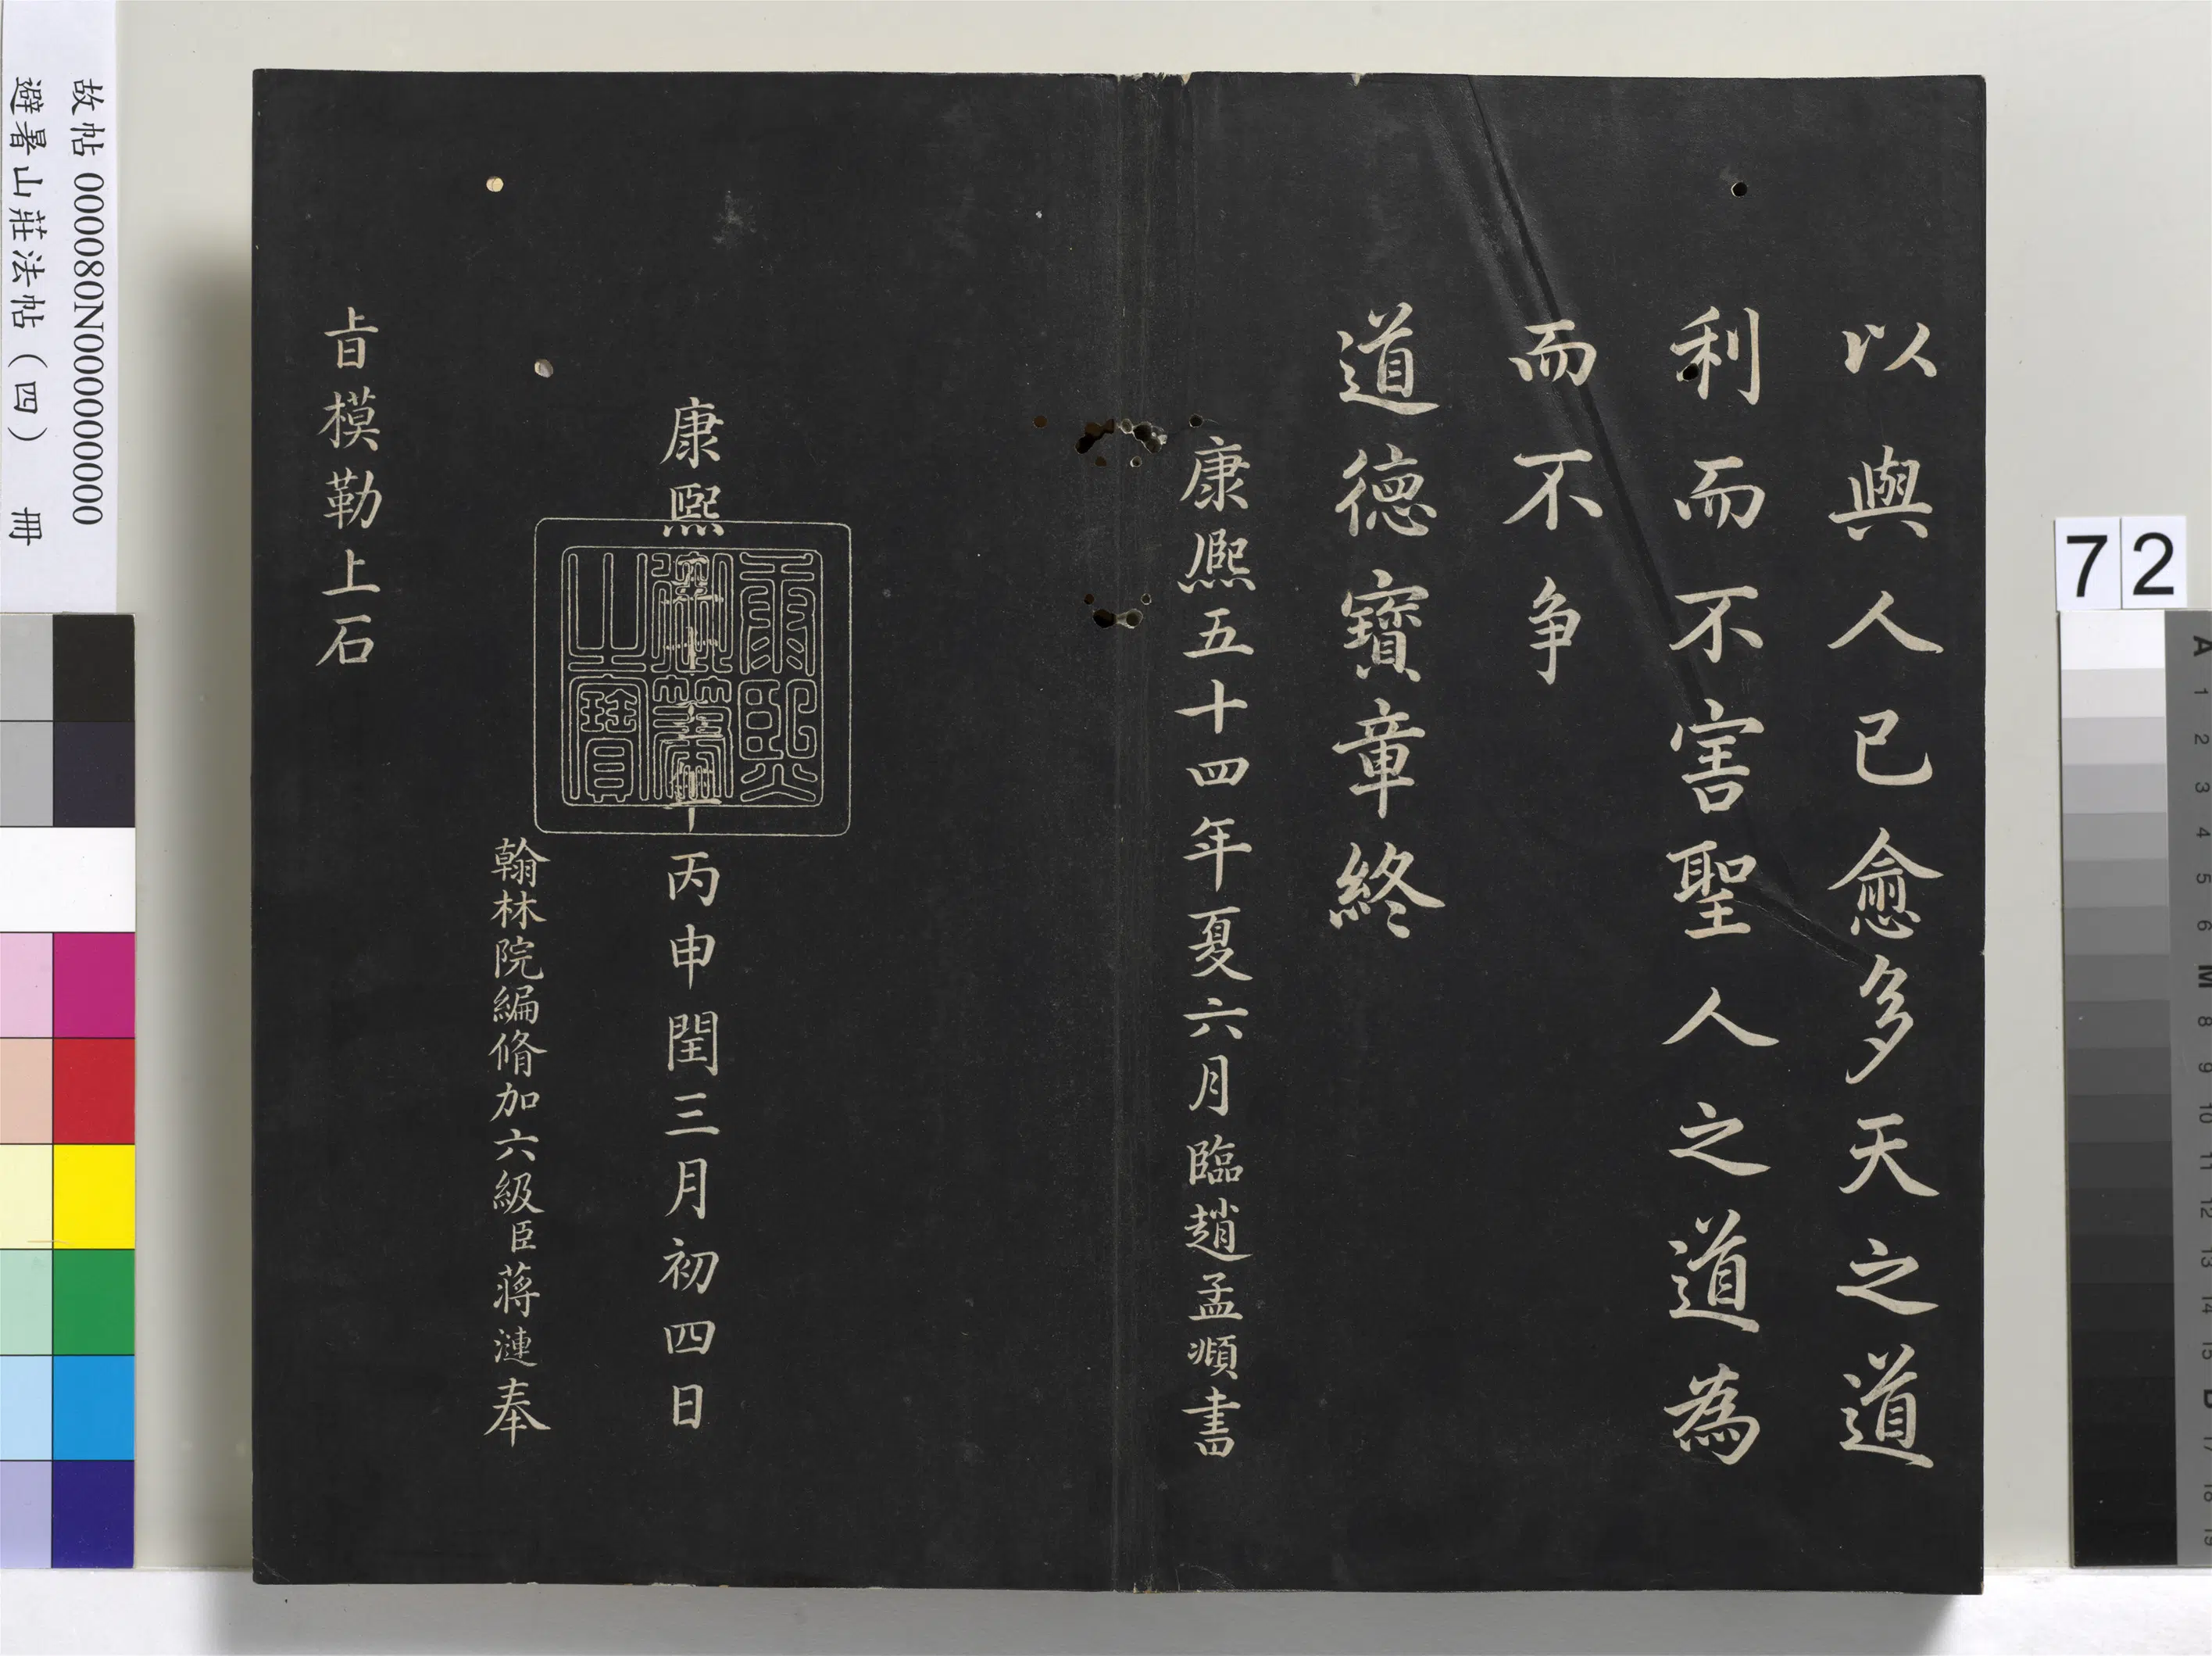 72
以與人已愈多天之道
利而不害聖人之道為
而不爭
道德寶章終
康熈五十四年夏六月臨趙孟頫書
康熙五十五年丙申閏三月初四日
康熙
御筆
之寶
翰林院編脩加六級臣蔣漣奉
旨模勒上石
故帖 000080N000000000
避暑山莊法帖（四） 冊
A 1 2 3 4 5 6 M 8 9 10 11 12 13 14 15 B 17 18 19